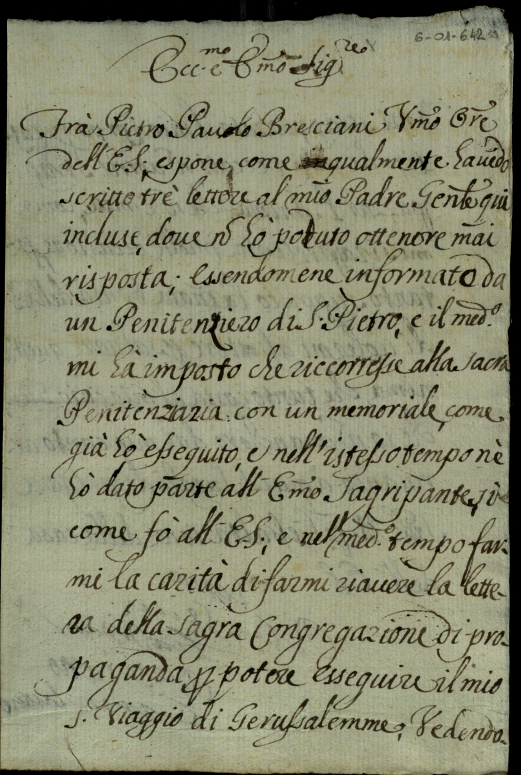 6-01-642
Ecc.mo e E͞mo Sig.re
Frà Pietro Pavolo Bresciani V͞mo O͞re
dell' E.S., espone come qualmente havedo
scritto trè lettere al mio Padre Gen͞le qui
incluse, dove n͞ hò potuto ottenere mai
risposta; essendomene informato da
un Penitenziero di S. Pietro, e il med.o
mi hà imposto che riccorresse alla sacra
Penitenziaria con un memoriale, come
già hò esseguito, e nell' istesso tempo nè
hò dato parte all' E͞mo Sagripante, si
come fò all' E.S., e nell' med.o tempo far-
mi la carità di farmi riavere la lette-
ra della sagra Congregazione di pro-
paganda p potere esseguire il mio
S. Viaggio di Gerussalemme; Vedendo-